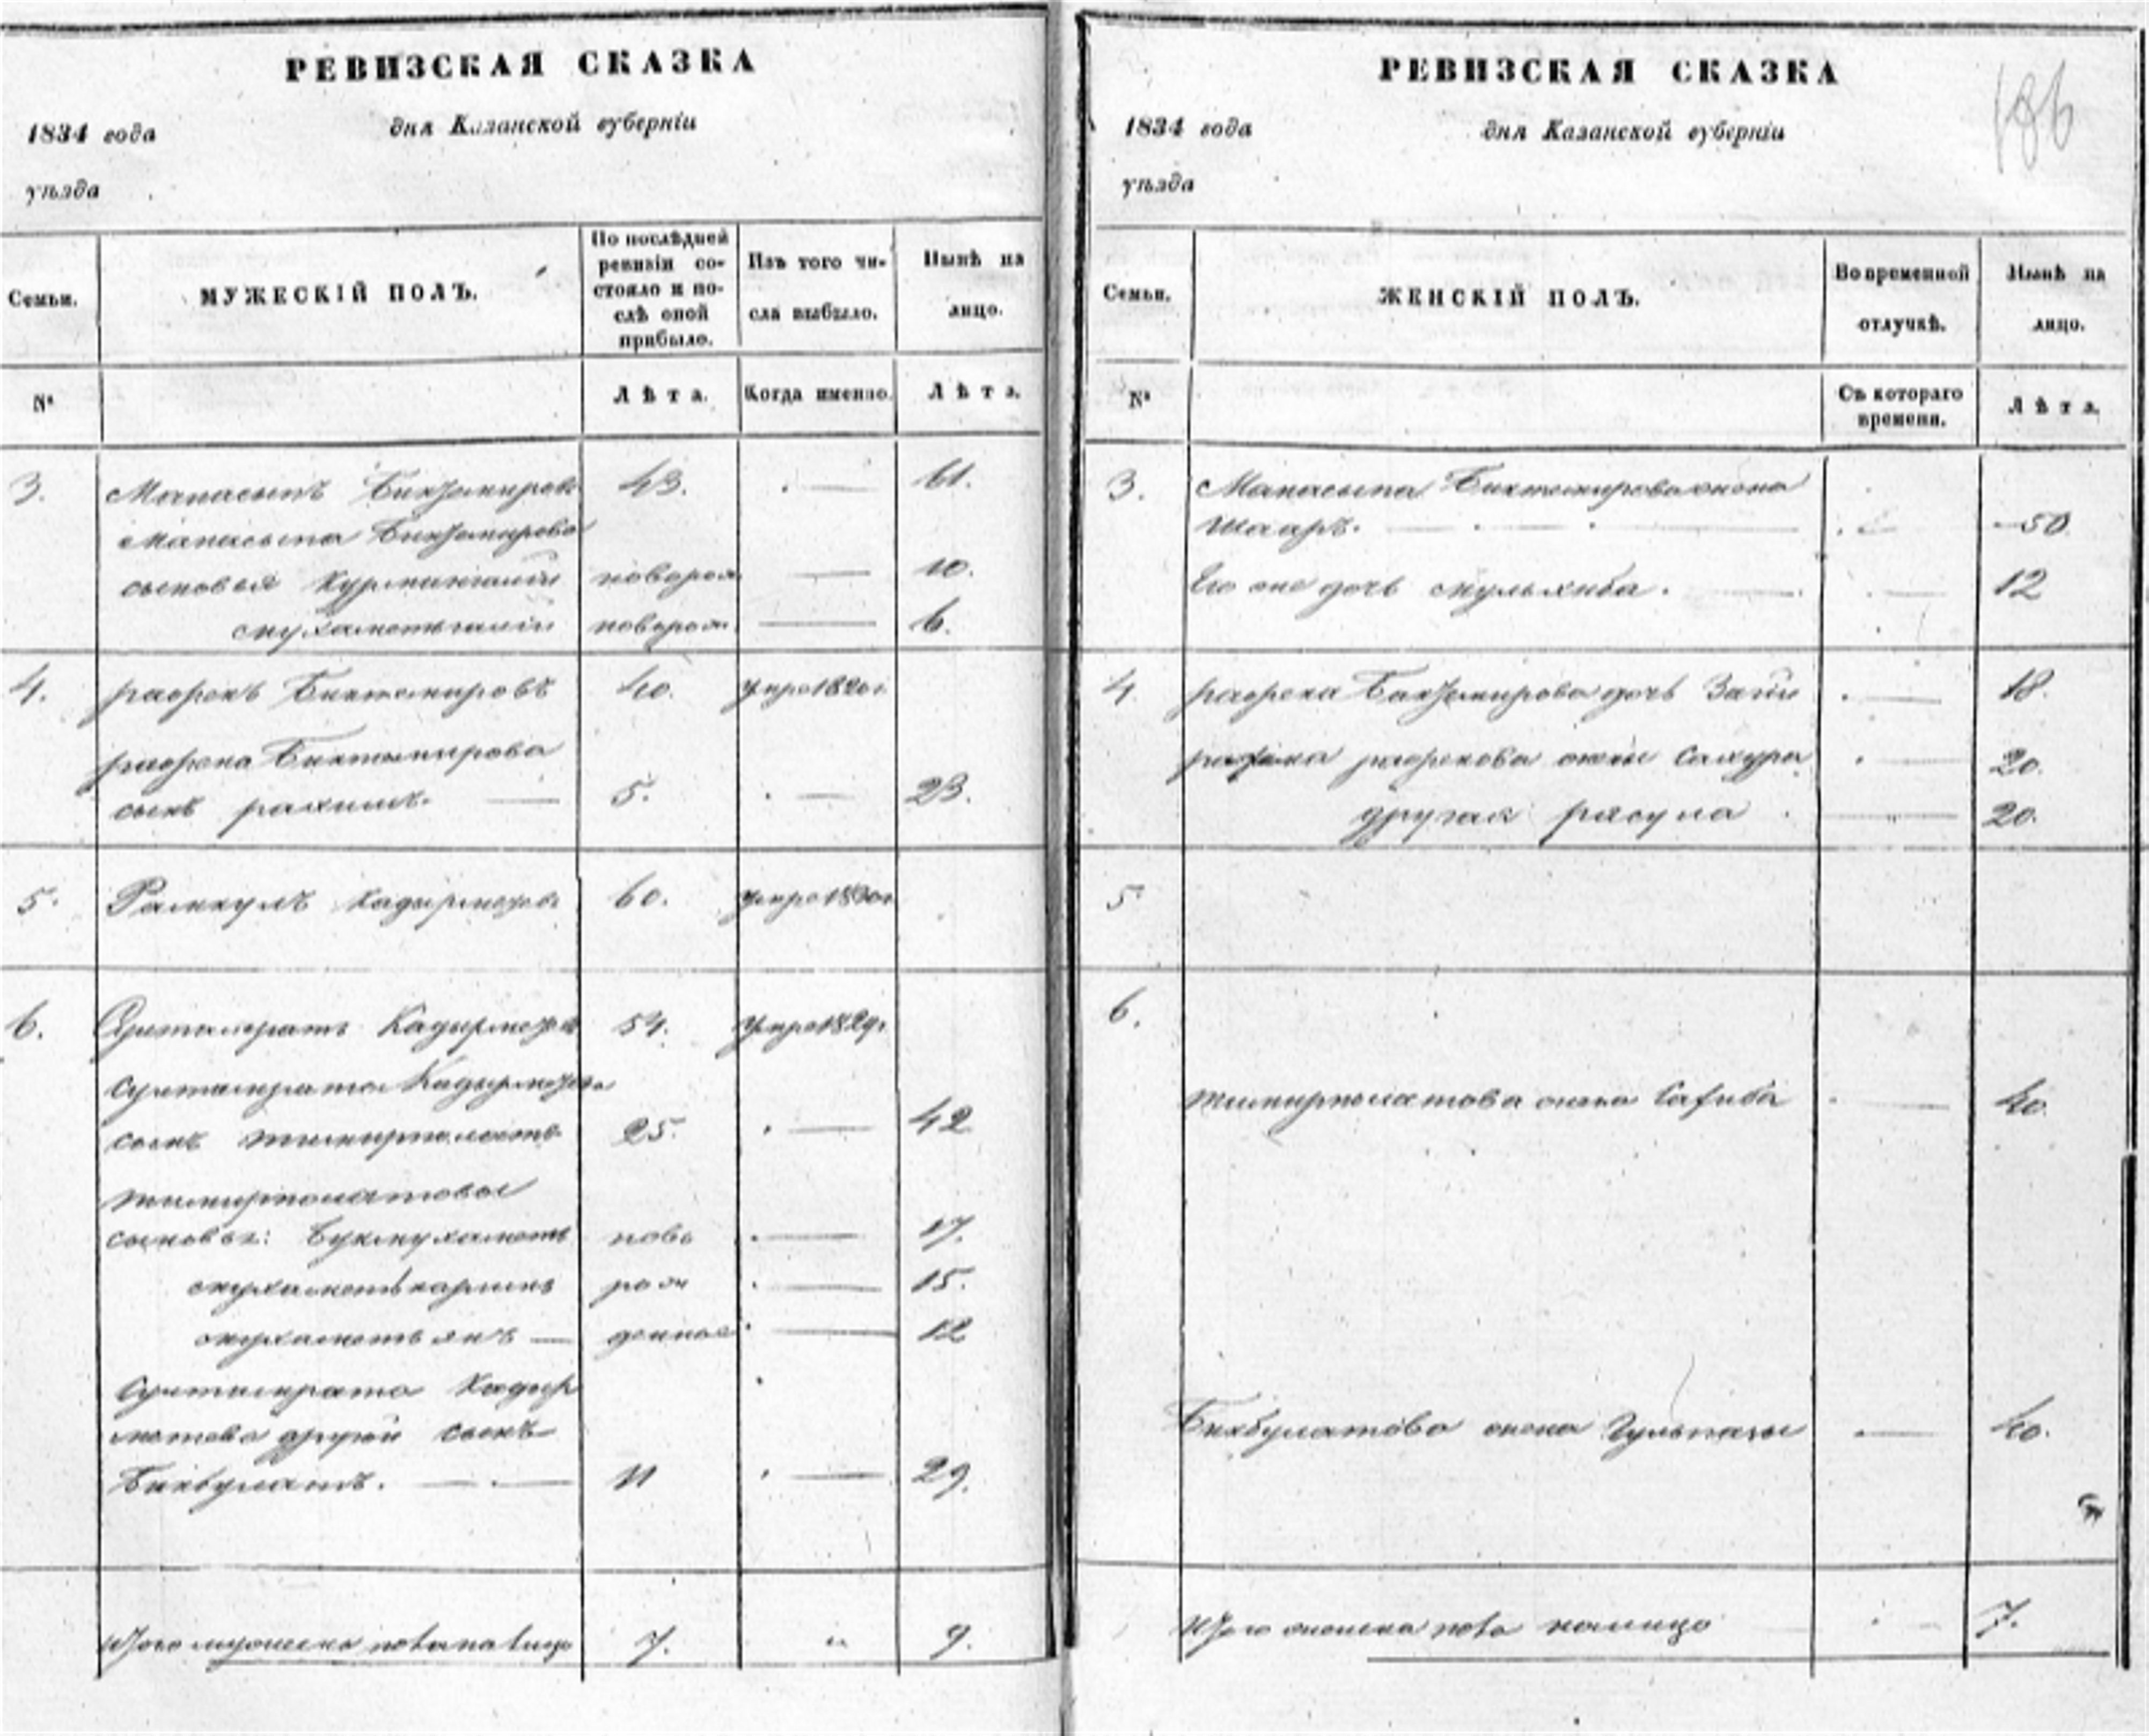 РЕВИЗСКАЯ СКАЗКА
1834 года дня Казанской губерніи
уѣзда
Семьи.
МУЖЕСКІЙ ПОЛЪ.
По послѣдней ревизіи состояло и послѣ оной прибыло.
Изъ того числа выбыло.
Нынѣ на лицо.
№
Лѣта.
Когда именно.
Лѣта.
3. Манасыпъ Биктемировъ 43. — 61.
Манасыпа Биктемирова
сыновья Курмангали новорож — 10.
мухаметьгали новорож. — 6.
4. рафекъ Биктемировъ 40. умре 1820 г.
рафека Биктемирова
сынъ рахимъ. — 5. — 23.
5. Рамкулъ Кадырметовъ 60. умре 1830 г.
6. Суртамратъ Кадырметовъ 54. умре 1829 г.
Сумтамрата Кадырметова
сынъ тимирполатъ 25. — 42
тимирполатовы
сыновья: Букмухаметь ново — 17.
мухаметькаримъ рож — 15.
мухаметьянъ — денные — 12
Сумтамрата Кадыр
метова другой сынъ
Бикбулатъ. — 11 — 29.
Итого мужеска пола налицо 7. „ 9.
РЕВИЗСКАЯ СКАЗКА
186
1834 года дня Казанской губерніи
уѣзда
Семьи.
ЖЕНСКІЙ ПОЛЪ.
Во временной отлучкѣ.
Нынѣ на лицо.
№
Съ котораго времени.
Лѣта.
3. Манасыпа Биктемирова жена
Шааръ. — — 50.
Его же дочь мульхиба. — 12
4. рафека Биктемирова дочь Заги — 18.
рахима рафекова жены Сахура — 20.
другая расула — 20.
5
6.
тимирполатова жена Сагиба — 40.
Бикбулатова жена Гульпазы — 40.
Итого женска пола налицо 7.